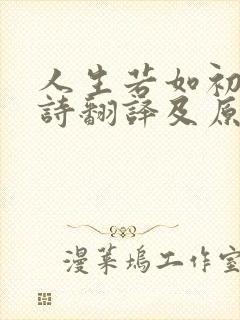 人生若如初
詩翻譯及原
漫葉塢工作室